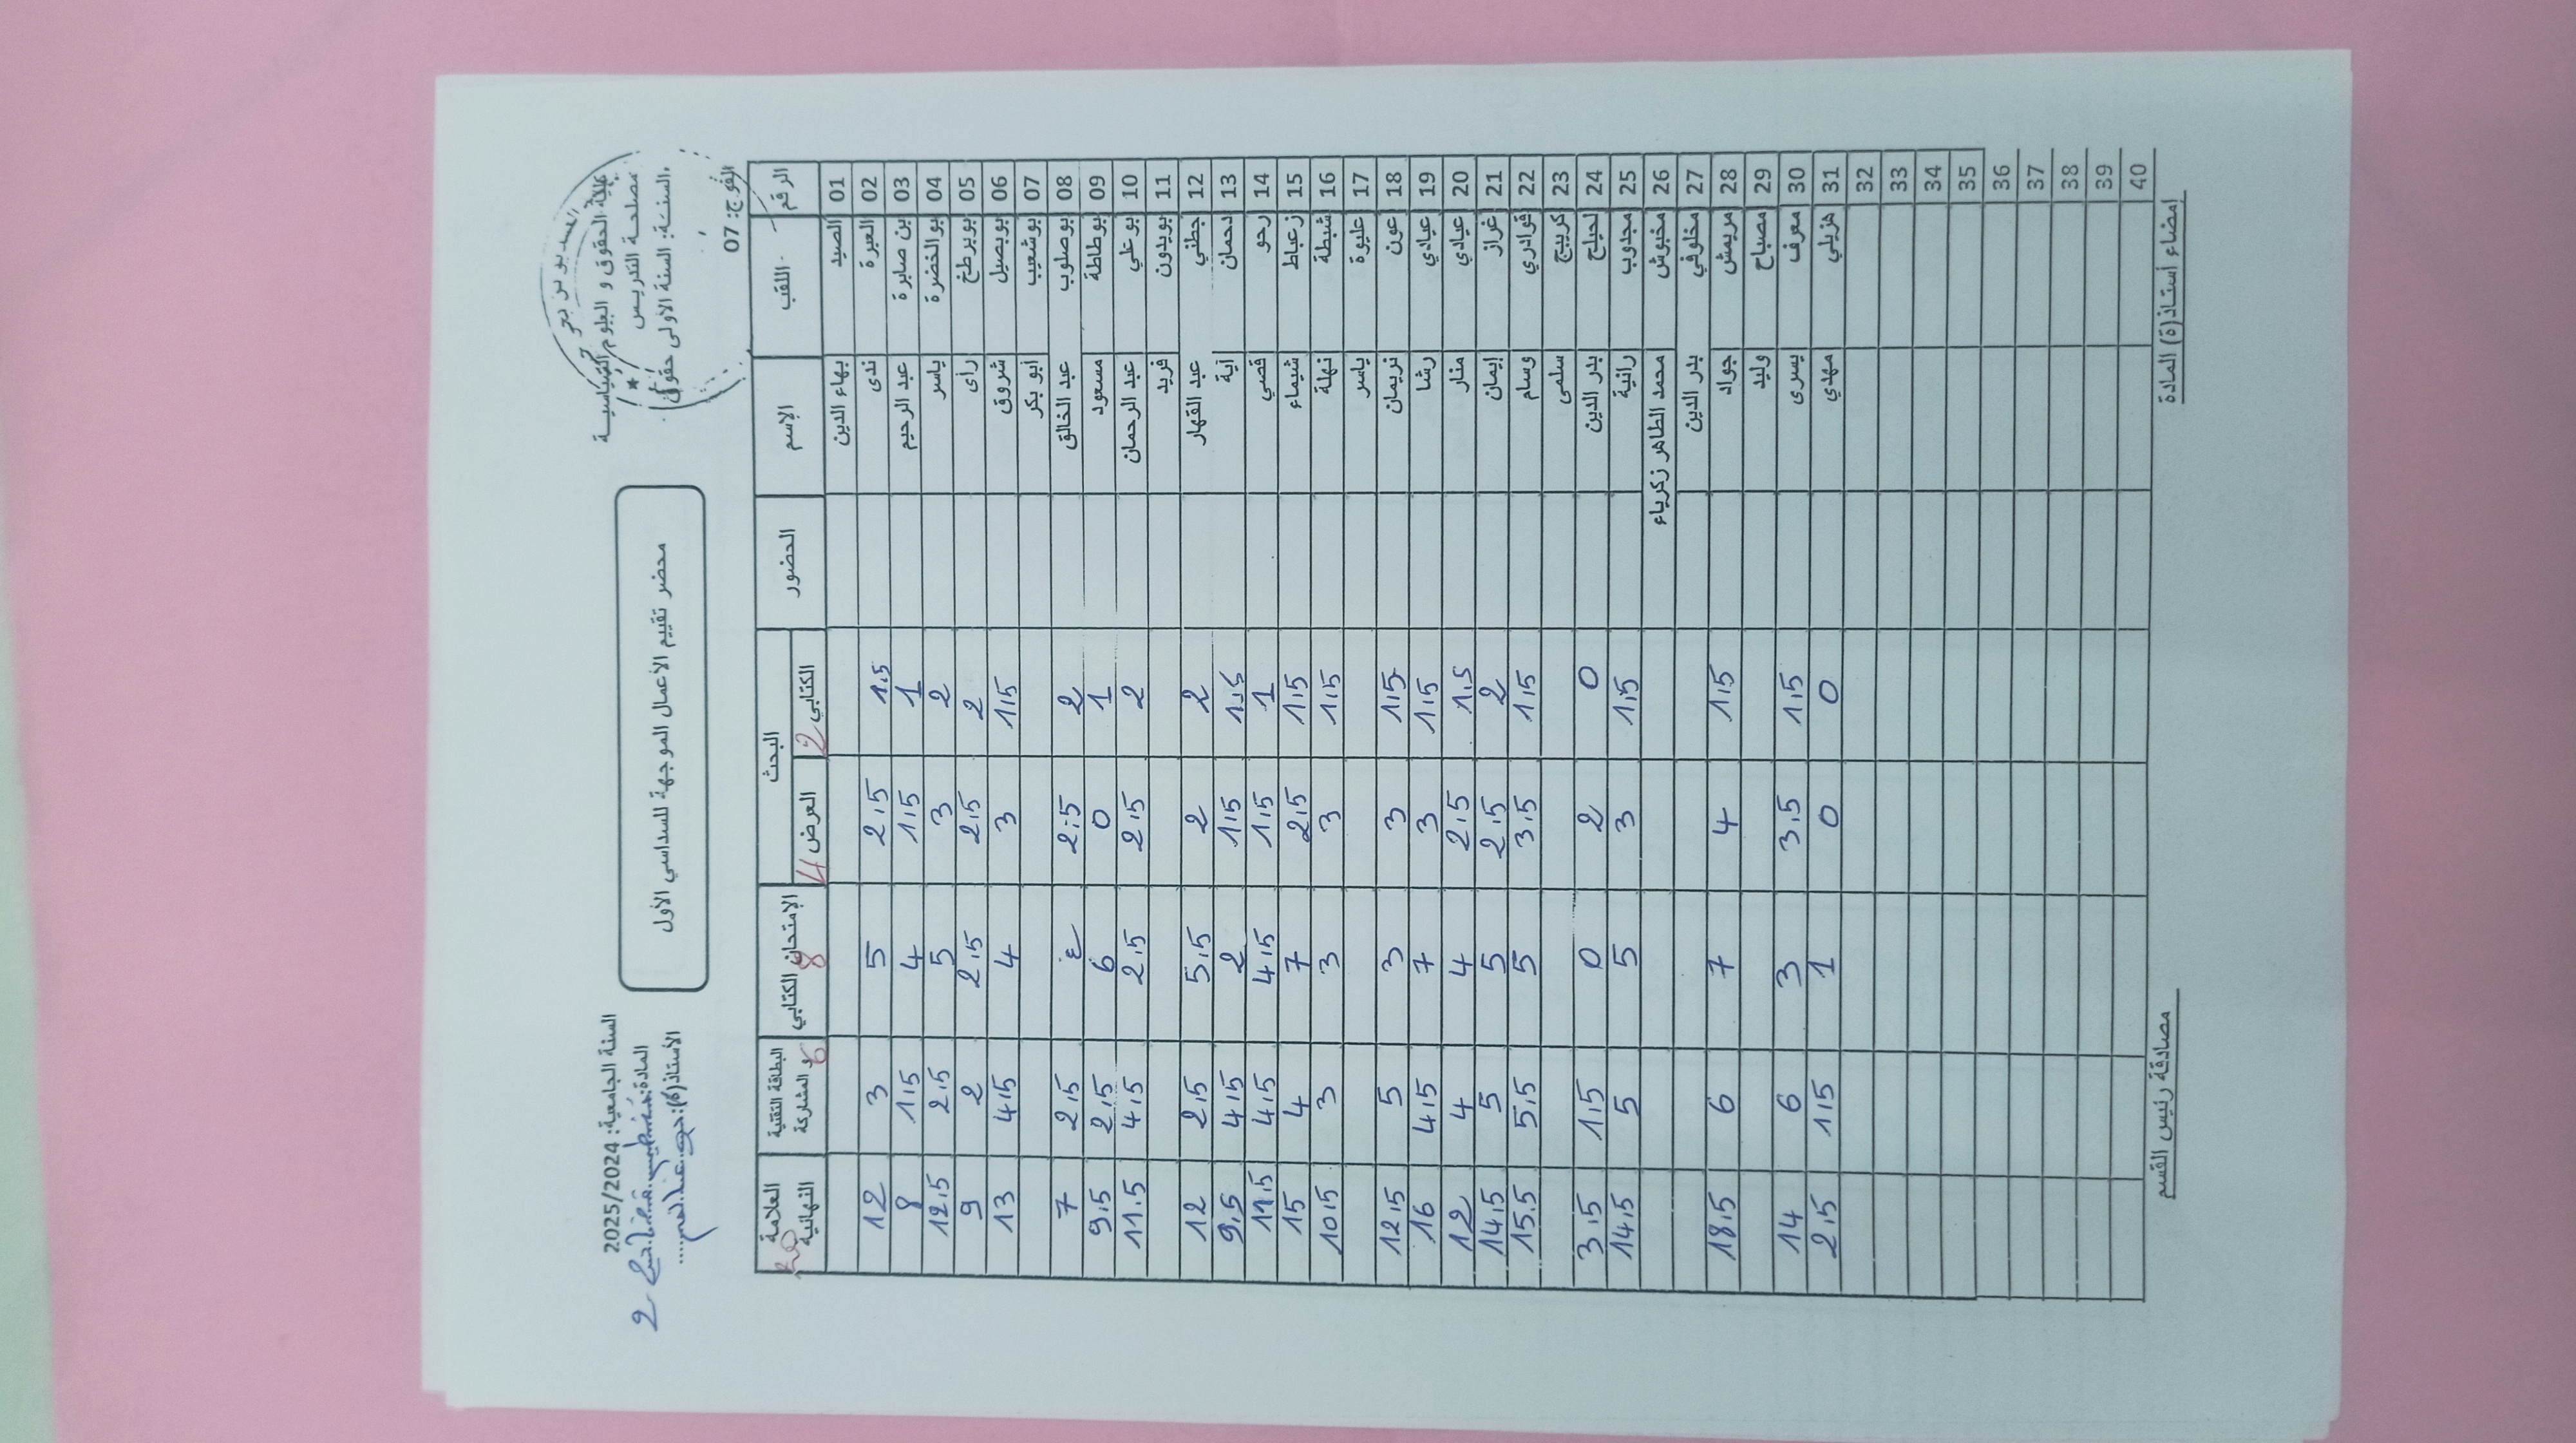 كلية الحقوق و العلوم السياسية
مصلحة التدريس
السنة: السنة الأولى حقوق
الفوج: 07
السنة الجامعية: 2025/2024
المادة:
الأستاذ(ة):
2
محضر تقييم الأعمال الموجهة للسداسي الأول
الرقم اللقب الإسم الحضور البحث الإمتحان الكتابي 8 البطاقة التقنية و المشاركة 6 العلامة النهائية 20
الكتابي 2 العرض 4
01 الصيد بهاء الدين
02 العبرة ندى 1.5 2.5 5 3 12
03 بن صابرة عبد الرحيم 1 1.5 4 1.5 8
04 بو الخضرة ياسر 2 3 5 2.5 12.5
05 بوبرطخ راى 2 2.5 2.5 2 9
06 بوبصيل شروق 1.5 3 4 4.5 13
07 بوشعيب أبو بكر
08 بوصلوب عبد الخالق 2 2.5 غ 2.5 7
09 بوطاطة مسعود 1 0 6 2.5 9.5
10 بوعلي عبد الرحمان 2 2.5 2.5 4.5 11.5
11 بويدون فريد
12 جطني عبد القهار 2 2 5.5 2.5 12
13 دحمان آية 1.5 1.5 2 4.5 9.5
14 رحو قصي 1 1.5 4.5 4.5 11.5
15 زعباط شيماء 1.5 2.5 7 4 15
16 شبطة نهلة 1.5 3 3 3 10.5
17 عليوة ياسر
18 عون نريمان 1.5 3 3 5 12.5
19 عيادي رشا 1.5 3 7 4.5 16
20 عيادي منار 1.5 2.5 4 4 12
21 غراز إيمان 2 2.5 5 5 14.5
22 قوادري وسام 1.5 3.5 5 5.5 15.5
23 كريبج سلمى
24 لحيلح بدر الدين 0 2 0 1.5 3.5
25 مجدوب رانية 1.5 3 5 5 14.5
26 مخبوش محمد الطاهر زكرياء
27 مخلوفي بدر الدين
28 مريمش جواد 1.5 4 7 6 18.5
29 مصباح وليد
30 معرف يسرى 1.5 3.5 3 6 14
31 هزيلي مهدي 0 0 1 1.5 2.5
32
33
34
35
36
37
38
39
40
إمضاء أستاذ(ة) المادة
مصادقة رئيس القسم